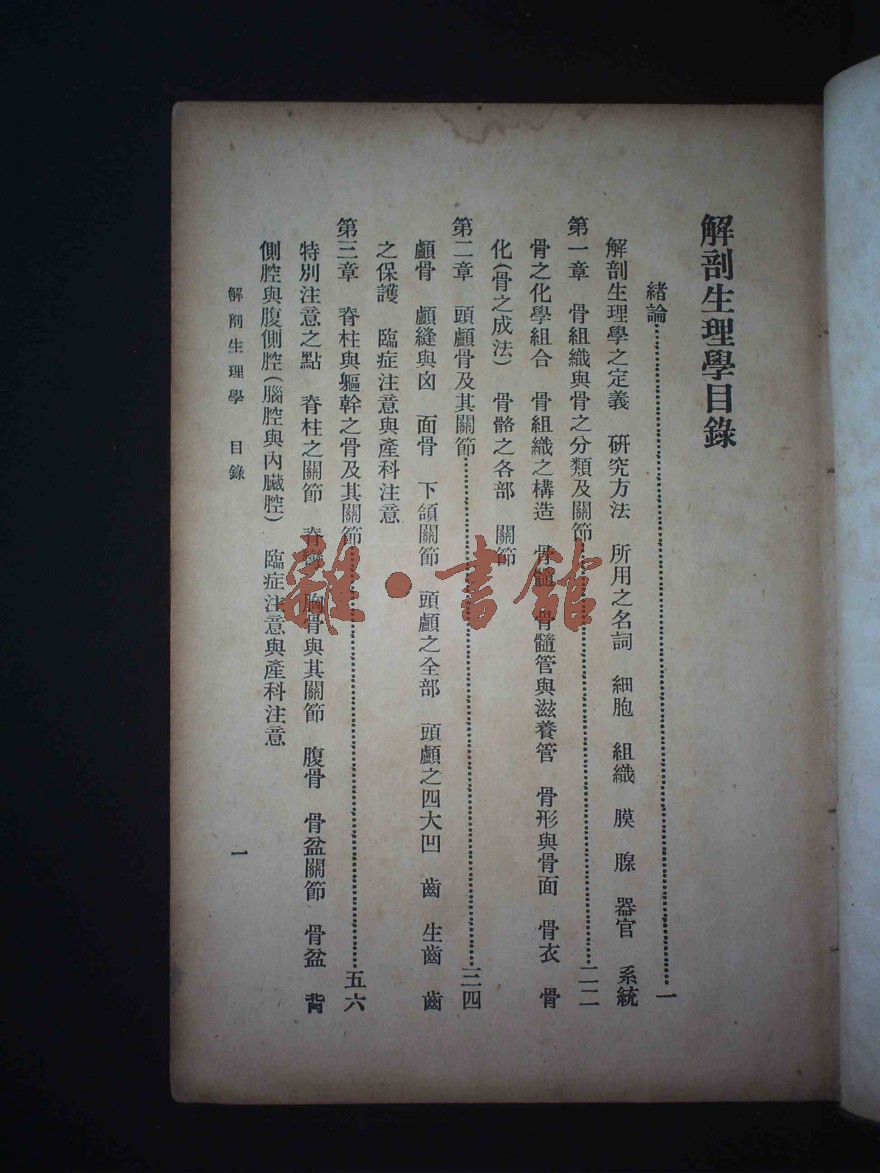 解剖生理學目錄
緒論……一
解剖生理學之定義 研究方法 所用之名詞 細胞 組織 膜 腺 器官 系統
第一章 骨組織與骨之分類及關節……二二
骨之化學組合 骨組織之構造 骨髓 骨髓管與滋養管 骨形與骨面 骨衣 骨
化(骨之成法) 骨骼之各部 關節
第二章 頭顱骨及其關節……三四
顱骨 顱縫與囟 面骨 下頜關節 頭顱之全部 頭顱之四大凹 齒 生齒 齒
之保護 臨症注意與產科注意
第三章 脊柱與軀幹之骨及其關節……五六
特別注意之點 脊柱之關節 脊彎 胸骨與其關節 腹骨 骨盆關節 骨盆 背
側腔與腹側腔(腦腔與內臟腔) 臨症注意與產科注意
解剖生理學 目錄 一
雜·書館